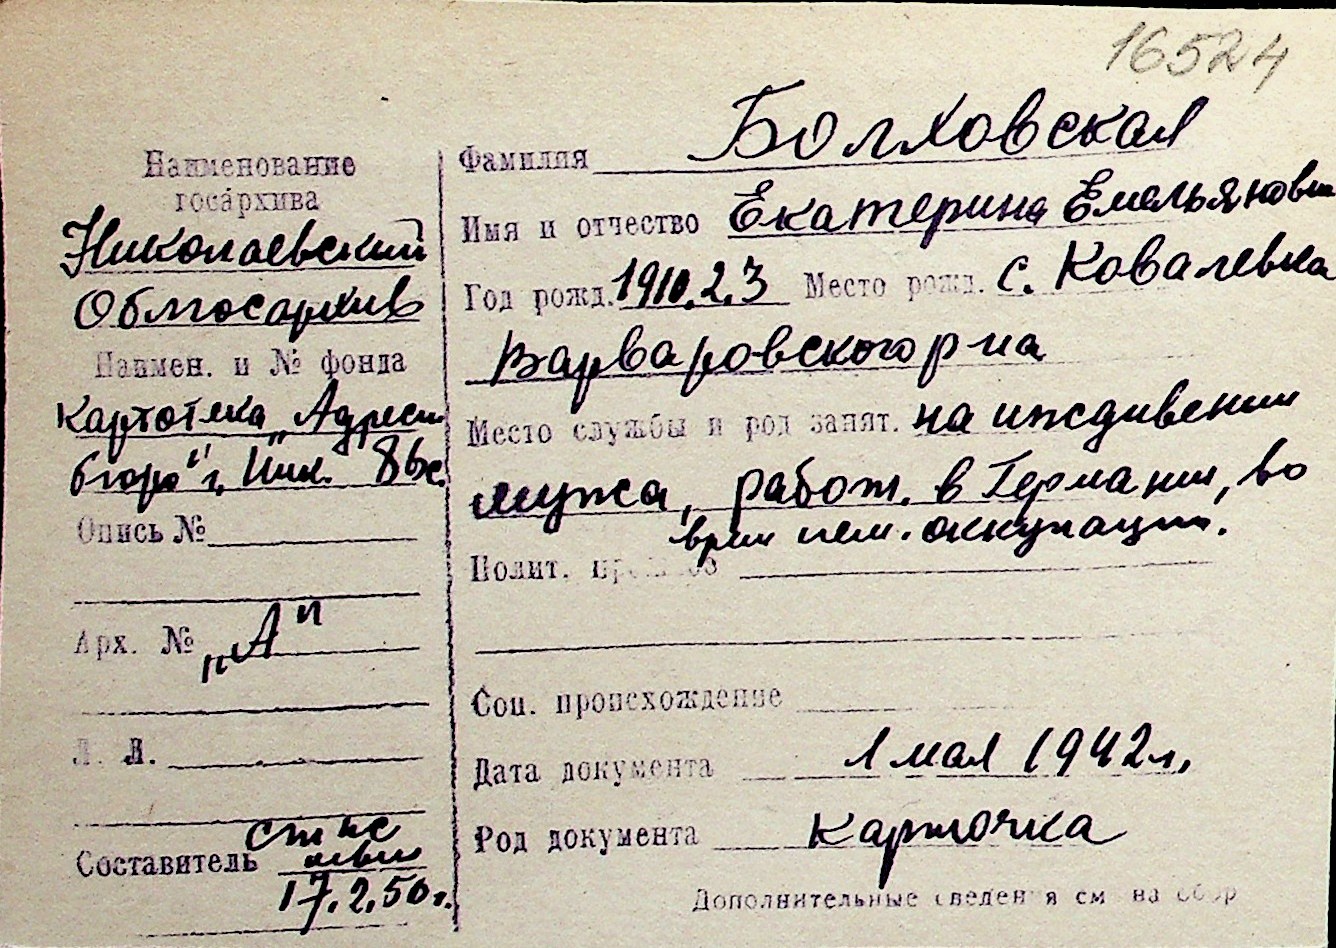 16524
Наименование
госархива
Николаевский
Облгосархив
Наимен. и № фонда
Картотека „Адресн
бюро" г. Ник. 86с.
Опись №
Арх. № „А"
Л. Л.
Составитель
17.2.50г.
Фамилия Болховская
Имя и отчество Екатерина Емельяновна
Год рожд. 1910.2.3 Место рожд. с. Ковалевка
Варваровского р-на
Место службы и род занят. на иждивении
мужа, работ. в Германии, во
врем нем. оккупации.
Полит.
Соц. происхождение
Дата документа 1 мая 1942г.
Род документа карточка
Дополнительные сведения см на обор